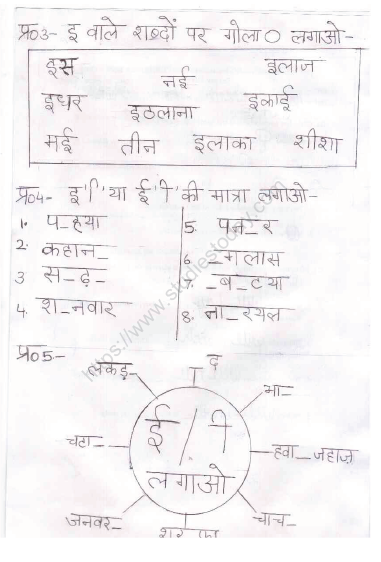 प्र०3- इ वाले शब्दों पर गोला○ लगाओ-
इस नई इलाज
इधर इठलाना इकाई
मई तीन इलाका शीशा
प्र०4- इ 'ि' या ई 'ी' की मात्रा लगाओ-
1. प_हया 5. पन_र
2. कहान_ 6 _गलास
3 स_ढ़_ 7. _ब_टया
4. श_नवार 8. ना_रयल
प्र० 5:-
लकड़_ _द
भा_
ई / ी
चटा_ हवा_जहाज़
लगाओ
जनवर_ चाच_
https://www.studiestoday.com